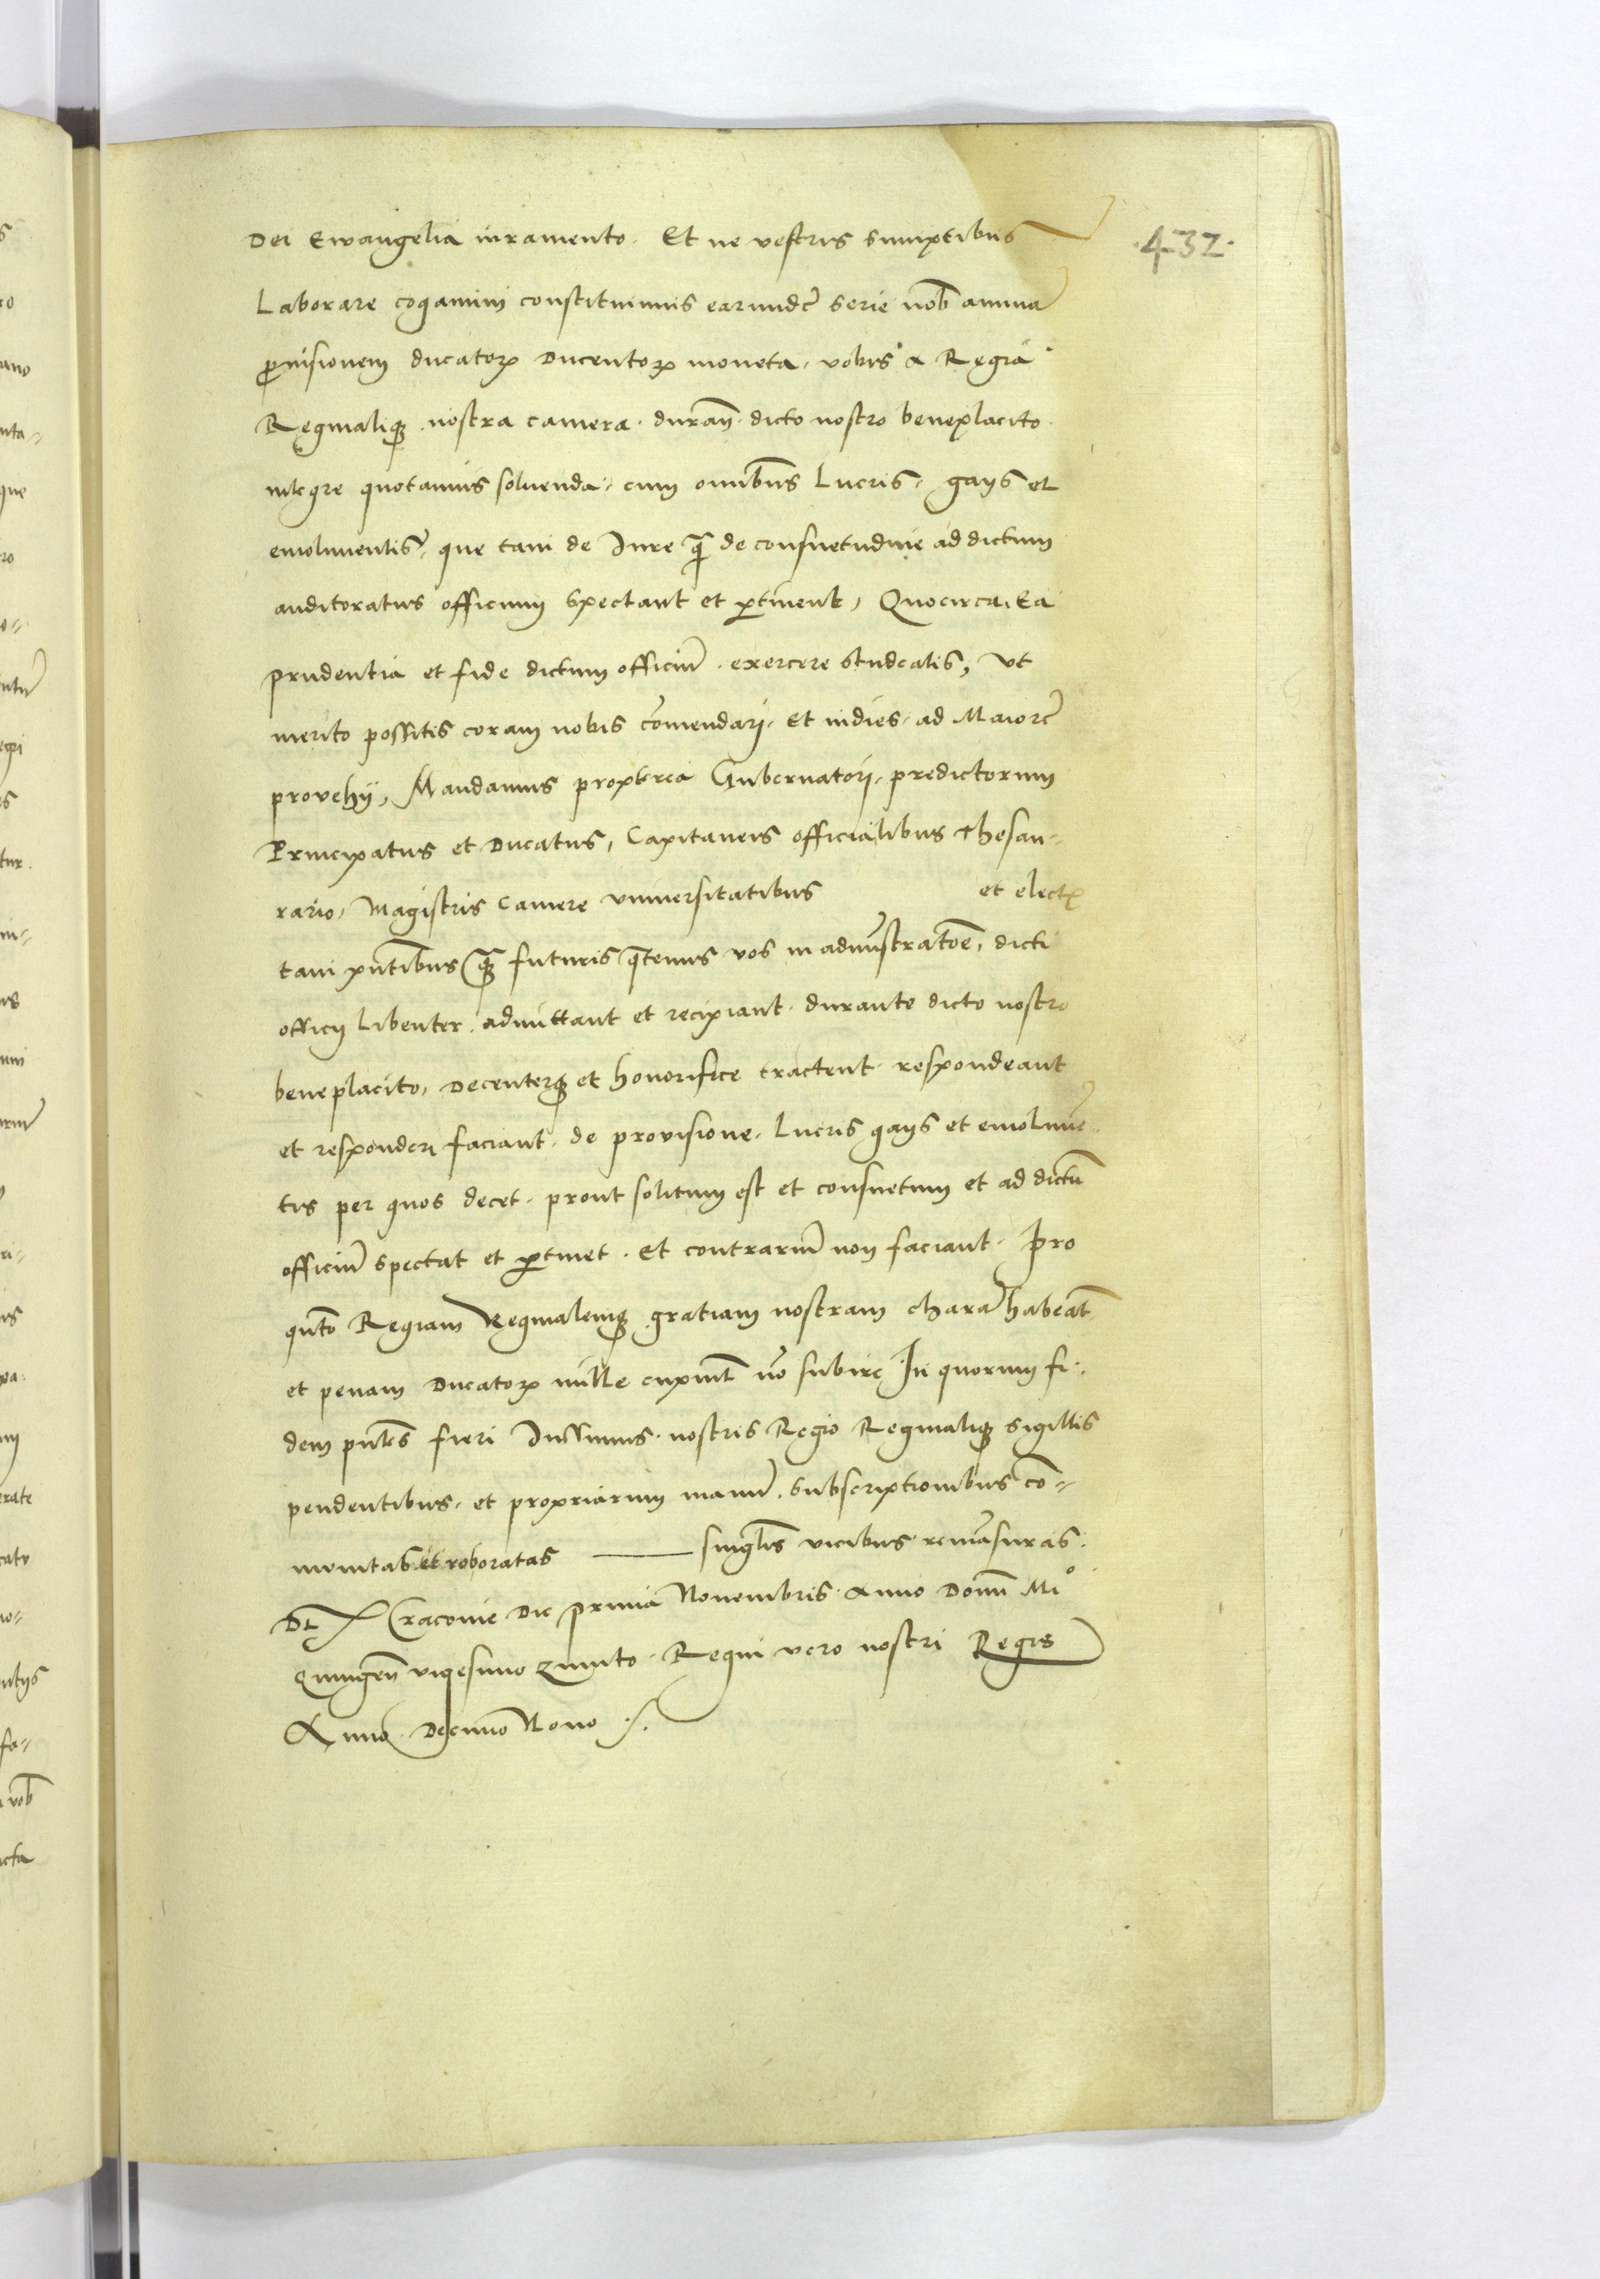 ·432·
Dei Ewangelia iuramento. Et ne vestris sumptibus
Laborare cogamini constituimus earundẽ serie vob̃ annuã
ꝓuisionem ducatoꝝ Ducentoꝝ moneta. vobis a Regia
Reginaliqꝫ. nostra camera. durañ. dicto nostro beneplacito.
integre quotannis soluenda. cum omnibꝰ Lucris. gays et
emolumentis, que tam de Iure q̃ de consuetudine ad dictum
auditoratus officium spectant et ꝑtinent, Quocirca. Ea
prudentia et fide dictum officiũ. exercere studeatis, Ut
merito possitis coram nobis cõmendari. Et indies. ad Maiorẽ
provehij, Mandamus propterea Gubernatori. predictorum
Principatus et Ducatus, Capitaneis officialibus Thesau-
rario, Magistris Camere vniuersitatibus et electꝭ
tam pñtibus qꝫ futuris q̃tenus vos in admĩstratõe, dicti
officij libenter. admittant et recipiant. durante dicto nostro
beneplacito, Decenterqꝫ et honorifice tractent. respondeant
et responderi faciant. de provisione. Lucris gays et emolumẽ-
tis per quos decet. prout solitum est et consuetum et ad dictũ
officiũ spectat et ꝑtinet. Et contrariũ non faciant. Pro
qñto Regiam Reginalemqꝫ gratiam nostram charã habeãt
et penam Ducatoꝝ mille cupiũt nõ subire In quorum fi-
dem pñtes fieri Iussimus. nostris Regio Reginaliqꝫ sigillis
pendentibus. et propriarum manuũ. subscriptionibus cõ-
munitas et roboratas singłis vicibus remãsuras.
Dt. Cracovie Die prima Novembris. Anno Domĩ Mº
Quingeñ vigesimo Quinto. Regni vero nostri Regis
Anno Decimo Nono